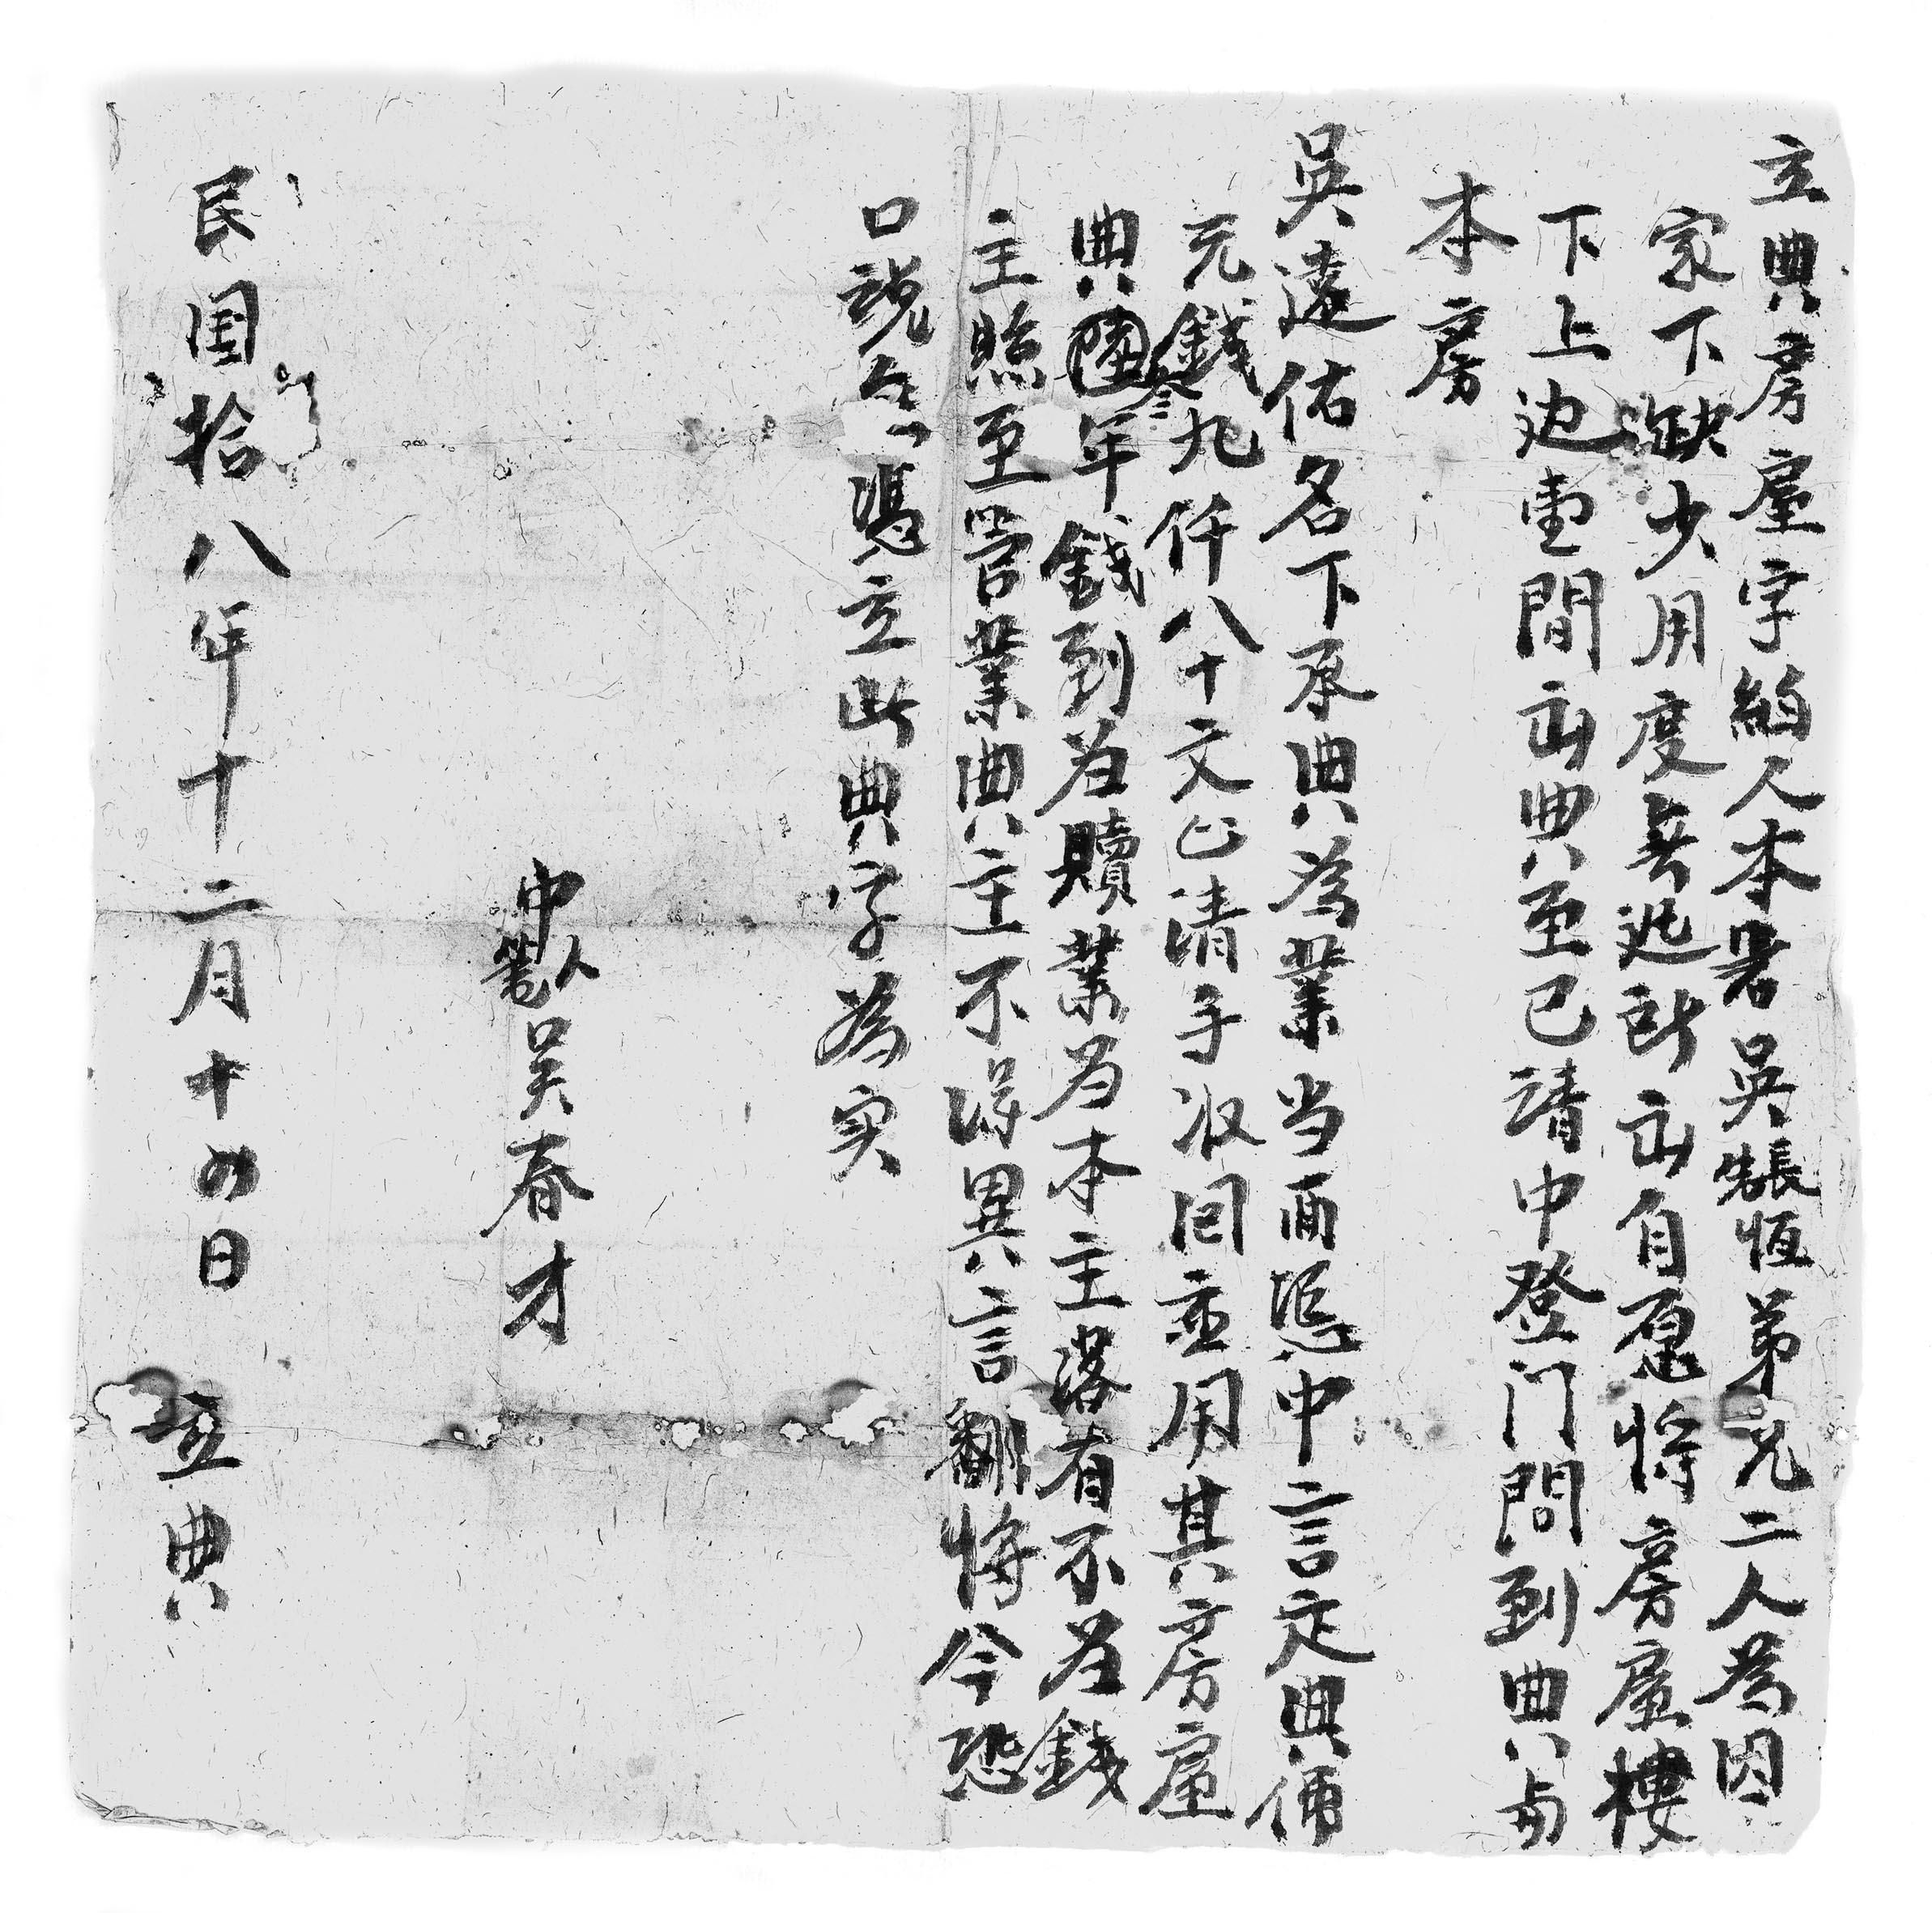 立典房屋字約人本寨吳張恆弟兄二人為因
家下缺少用度無從所出自愿將房屋樓
下上边壹間出典至己請中登门問到典与
本房
吳遠佑名下承典為業当面憑中言定典価
元錢叁九仟八十文正清手收囘並用其房屋
典陸年錢到为贖業为本主落有不为錢
主照至管業典主不得異言翻悔今恐
口說無憑立此典字為实
中人
筆吳春才
民国拾八年十二月十四日 立典